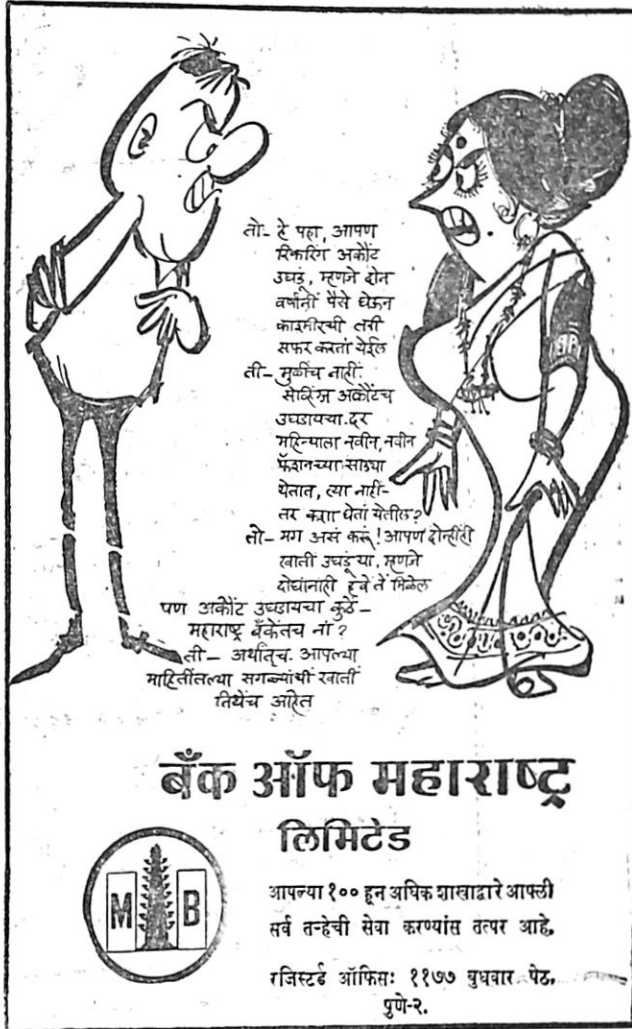 तो- हे पहा, आपण
रिकरिंग अकौंट
उघडूं, म्हणजे दोन
वर्षांनीं पैसे घेऊन
काश्मीरची तरी
सफर करतां येईल
ती- मुळींच नाहीं.
सेव्हिंग्ज अकौंटच
उघडायचा. दर
महिन्याला नवीन, नवीन
फॅशनच्या साड्या
येतात, त्या नाहीं-
तर कशा घेतां येतील?
तो- मग असं करूं! आपण दोन्हीही
खातीं उघडूं या, म्हणजे
दोघांनाही हवें तें मिळेल
पण अकौंट उघडायचा कुठें-
महाराष्ट्र बँकेतच नां?
ती- अर्थातच. आपल्या
माहितींतल्या सगळ्यांचीं खातीं
तिथेंच आहेत
बँक ऑफ महाराष्ट्र
लिमिटेड
M B
आपल्या १०० हून अधिक शाखाद्वारे आपली
सर्व तऱ्हेची सेवा करण्यांस तत्पर आहे.
रजिस्टर्ड ऑफिस: ११७७ बुधवार पेठ,
पुणे-२.